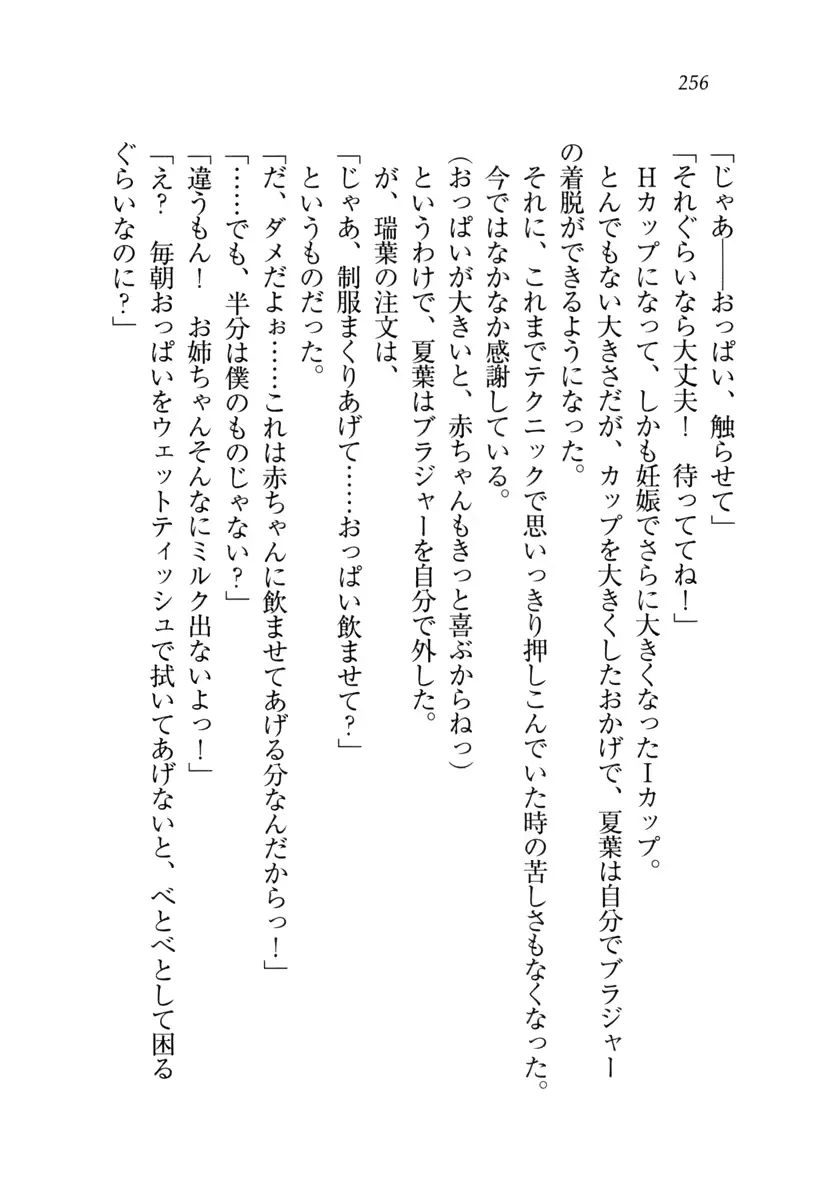 256
「じゃあ――おっぱい、触らせて」
「それぐらいなら大丈夫！　待っててね！」
Hカップになって、しかも妊娠でさらに大きくなったIカップ。
とんでもない大きさだが、カップを大きくしたおかげで、夏葉は自分でブラジャー
の着脱ができるようになった。
それに、これまでテクニックで思いっきり押しこんでいた時の苦しさもなくなった。
今ではなかなか感謝している。
（おっぱいが大きいと、赤ちゃんもきっと喜ぶからねっ）
というわけで、夏葉はブラジャーを自分で外した。
が、瑞葉の注文は、
「じゃあ、制服まくりあげて……おっぱい飲ませて？」
というものだった。
「だ、ダメだよぉ……これは赤ちゃんに飲ませてあげる分なんだからっ！」
「……でも、半分は僕のものじゃない？」
「違うもん！　お姉ちゃんそんなにミルク出ないよっ！」
「え？　毎朝おっぱいをウェットティッシュで拭いてあげないと、べとべとして困る
ぐらいなのに？」